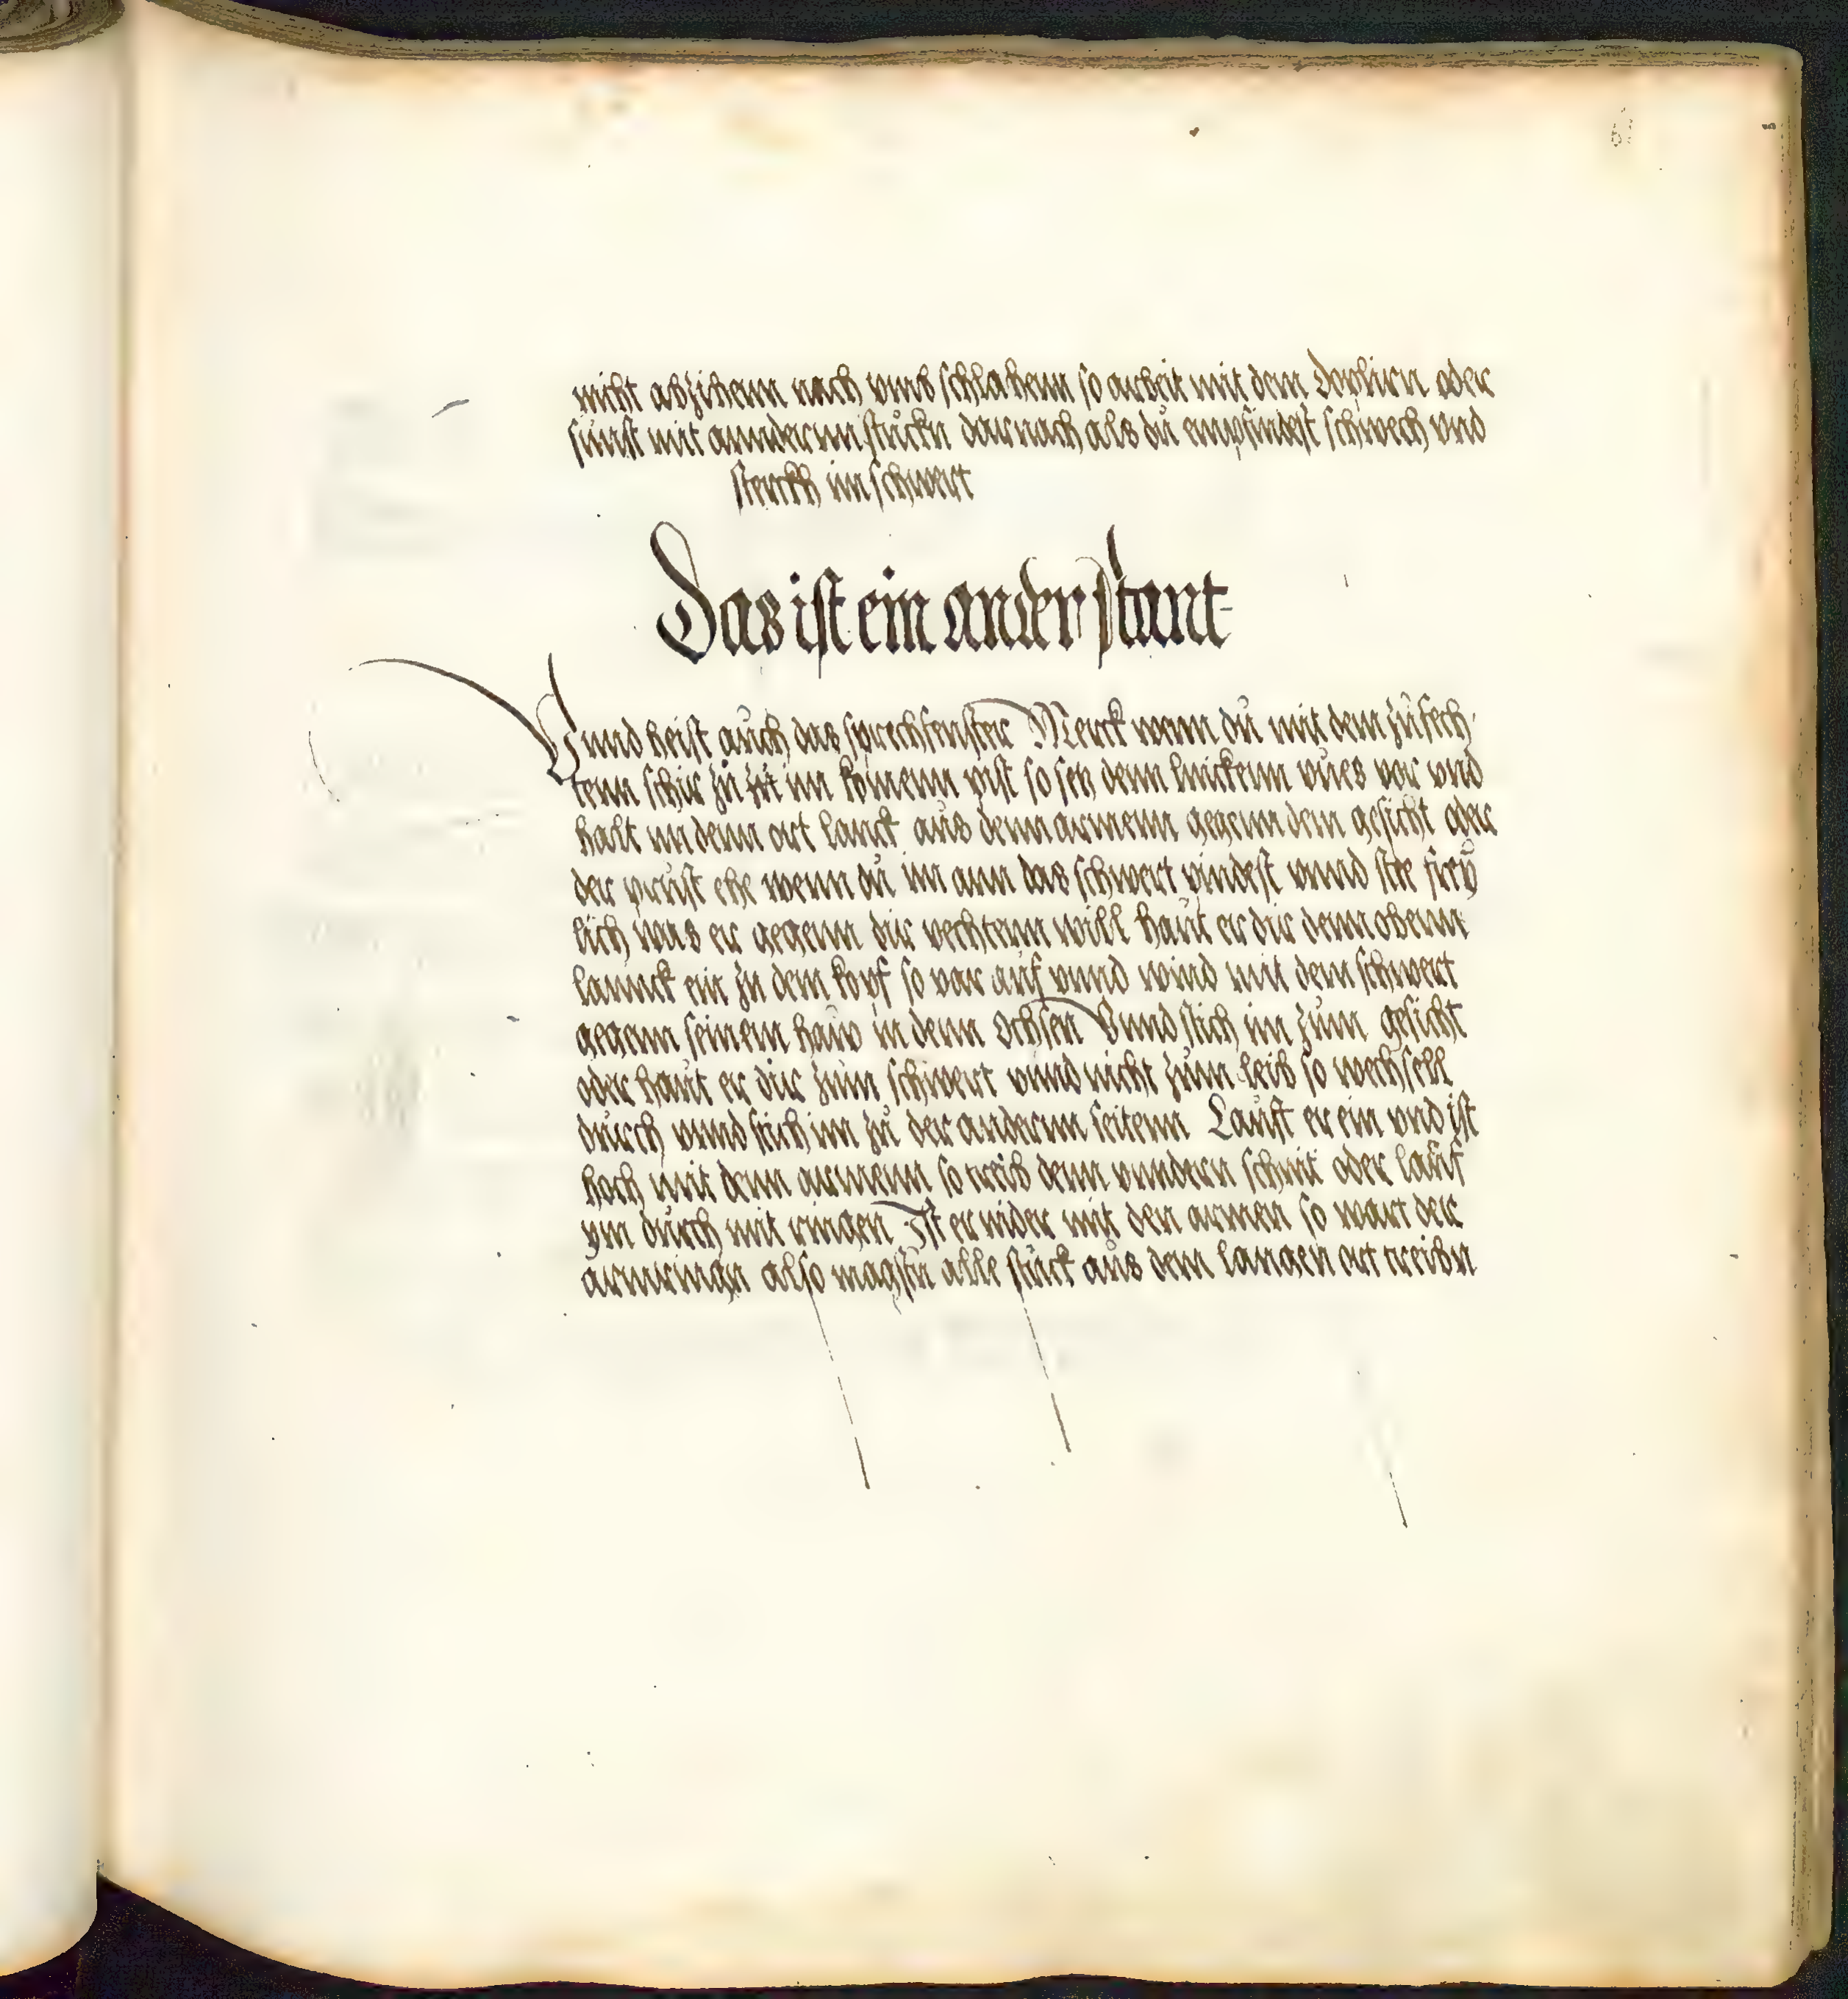 nicht abzihenn nach vmb schlahenn so arbeit mit dem dopliern oder
sünst mit anndernn stückn darnach als dü empfindest schwech vnd
sterckh im schwert
Das ist ein ander stant
Vnnd heist auch das sprechfenster Merck wenn dü mit dem züfech
tenn schir zu zü im komenn pist so setz denn linckenn vues vor vnd
halt im denn ort lanck aus denn armenn gegenn dem gesicht oder
der prüst ehe wenn dü im ann das schwert pindest vnnd ste frey
lich was er gegenn dir vechtenn will haüt er dir denn obenn
lannck ein zu dem kopf so var auf vnnd wind mit dem schwert
gegenn seinem haw in denn Ochsen Vnnd stich im züm gesicht
oder haüt er dir züm schwert vnnd nicht züm leib so wechsell
dürch vnnd stich im zü der andernn seitenn Laüft er ein vnd ist
hoch mit denn armenn so treib denn vnndern schnit oder laüf
ym dürch mit ringen Ist er nider mit den armen so wart der
armringn also magstu alle stück aus dem langen ort treibn